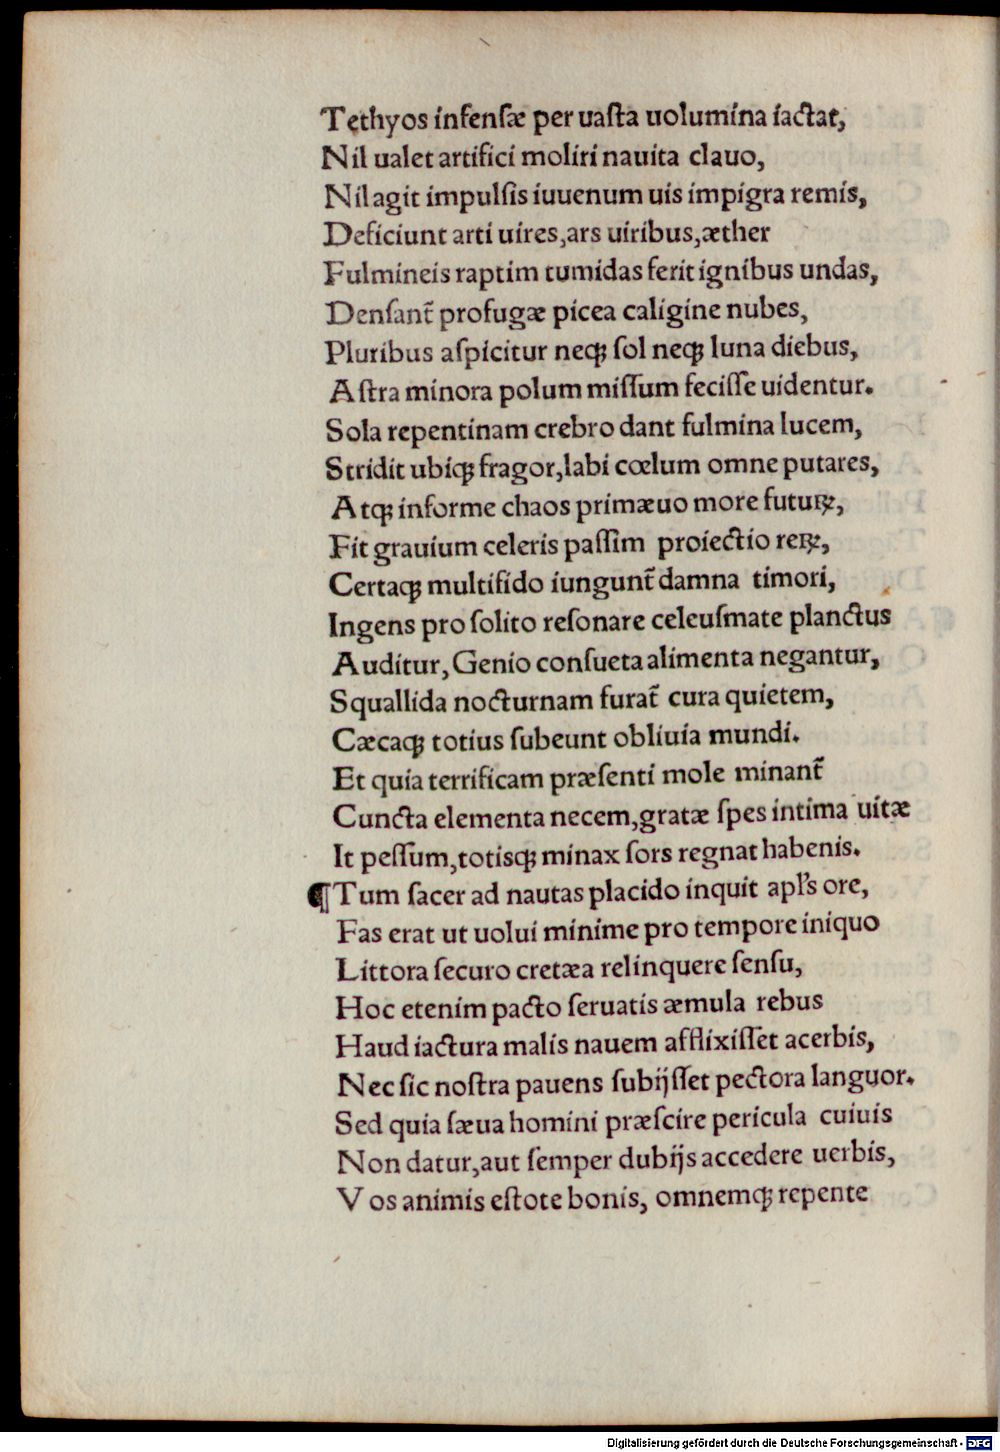 Tethyos infenſæ per uaſta uolumina iactat,
Nil ualet artifici moliri nauita clauo,
Nil agit impulſis iuuenum uis impigra remis,
Deficiunt arti uires,ars uiribus,æther
Fulmineis raptim tumidas ferit ignibus undas,
Denſant̃ profugæ picea caligine nubes,
Pluribus aſpicitur neqꝫ ſol neqꝫ luna diebus,
Aſtra minora polum miſſum feciſſe uidentur.
Sola repentinam crebro dant fulmina lucem,
Stridit ubiqꝫ fragor,labi cœlum omne putares,
Atqꝫ informe chaos primæuo more futuꝝ,
Fit grauium celeris paſſim proiectio reꝝ,
Certaqꝫ multifido iungunt̃ damna timori,
Ingens pro ſolito reſonare celeuſmate planctus
Auditur, Genio conſueta alimenta negantur,
Squallida nocturnam furat̃ cura quietem,
Cæcaqꝫ totius ſubeunt obliuia mundi.
Et quia terrificam præſenti mole minant̃
Cuncta elementa necem,gratæ ſpes intima uitæ
It peſſum,totisqꝫ minax ſors regnat habenis.
¶Tum ſacer ad nautas placido inquit apl's ore,
Fas erat ut uolui minime pro tempore iniquo
Littora ſecuro cretæa relinquere ſenſu,
Hoc etenim pacto ſeruatis æmula rebus
Haud iactura malis nauem afflixiſſet acerbis,
Nec ſic noſtra pauens ſubijſſet pectora languor.
Sed quia ſæua homini præſcire pericula cuiuis
Non datur,aut ſemper dubijs accedere uerbis,
Vos animis eſtote bonis, omnemqꝫ repente
Digitalisierung gefördert durch die Deutsche Forschungsgemeinschaft - DFG